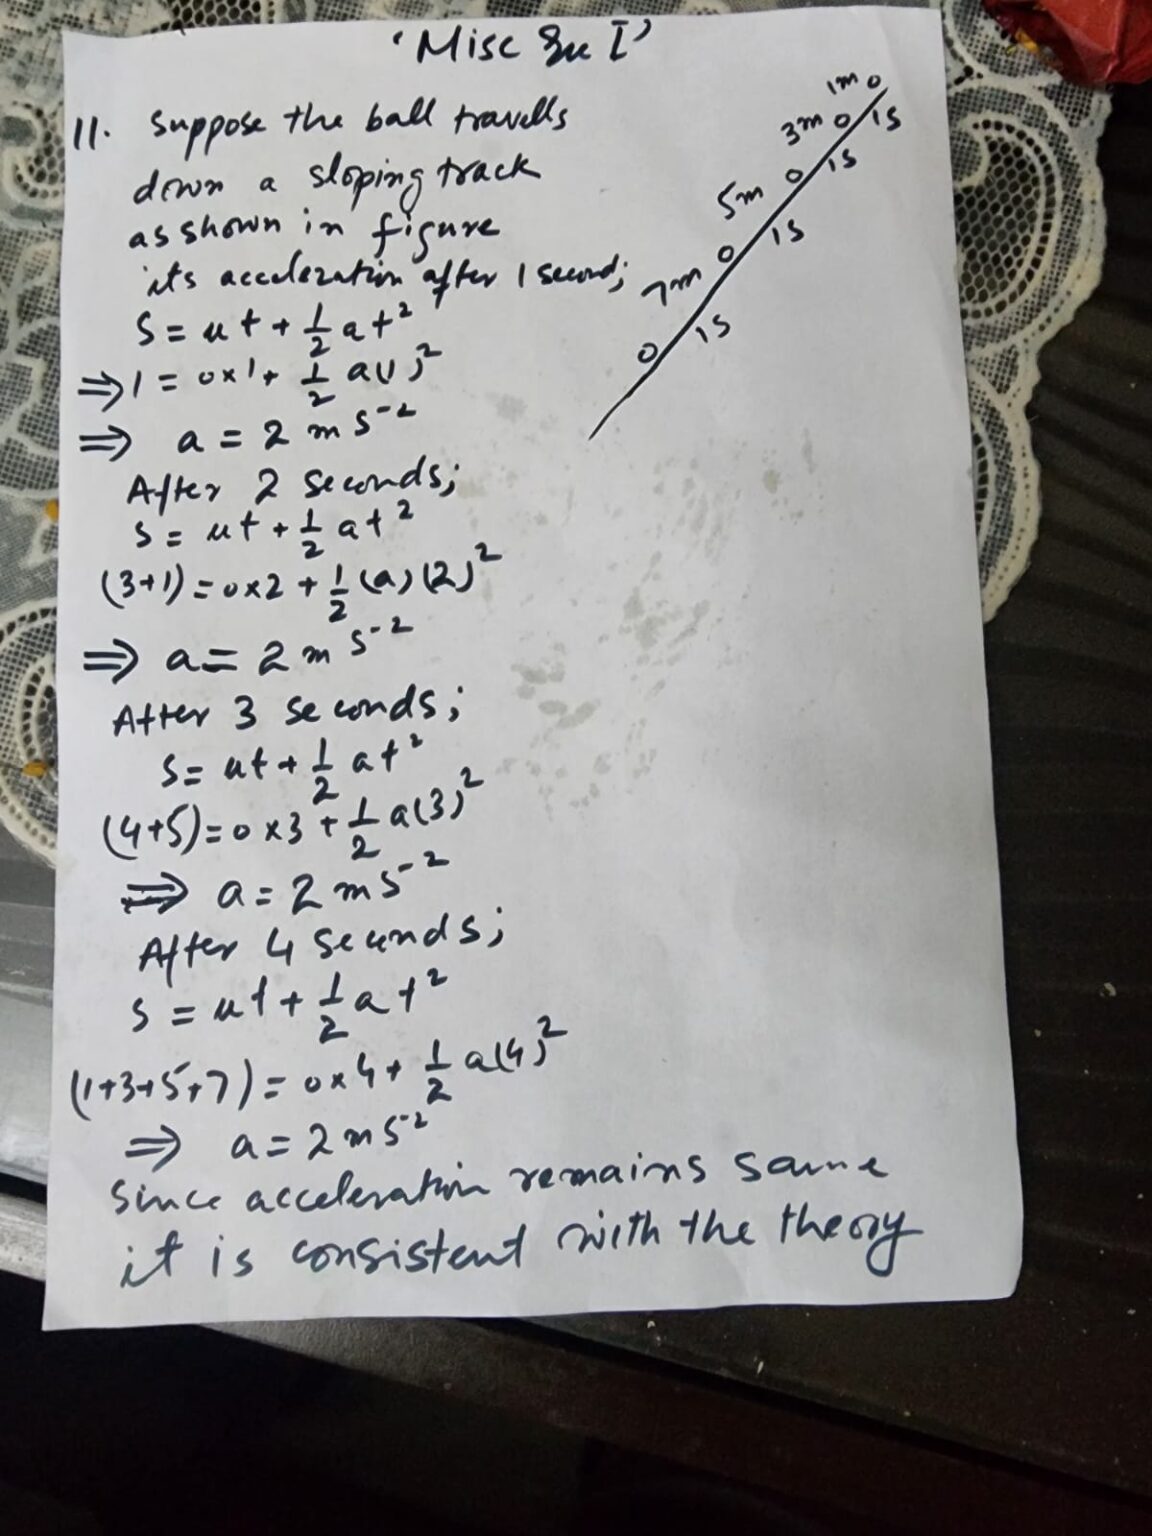 'Misc Ex I'
11. Suppose the ball travells
down a sloping track
as shown in figure
its acceleration after 1 second;
S = ut + 1/2 at²
⇒ 1 = 0×1 + 1/2 a(1)²
⇒ a = 2 m s⁻²
After 2 seconds;
S = ut + 1/2 at²
(3+1) = 0×2 + 1/2 (a)(2)²
⇒ a = 2 m s⁻²
After 3 seconds;
S = ut + 1/2 at²
(4+5) = 0×3 + 1/2 a(3)²
⇒ a = 2 m s⁻²
After 4 seconds;
S = ut + 1/2 at²
(1+3+5+7) = 0×4 + 1/2 a(4)²
⇒ a = 2 m s⁻²
Since acceleration remains same
it is consistent with the theory
1m
1s
3m
1s
5m
1s
7m
1s